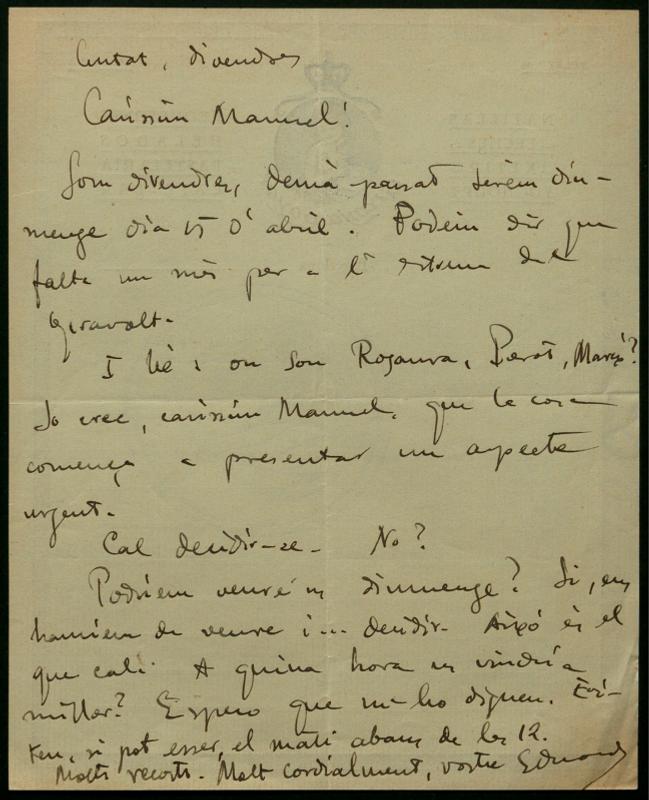 Ciutat, divendres
Caríssim Manuel!
Som divendres, demà passat serèm diu-
menge dia 15 d'abril. Podèm dir que
falta un mès per a l'estrena de
Giravolt.
I bé i on son Rosaura, Pierot, March?
Jo crec, caríssim Manuel, que la cosa
comença a presentar un aspecte
urgent.
Cal decidir-se. No?
Podriem veure'ns diumenge? Si, ens
hauriem de veure i... decidir. Això és el
que cal. A quina hora us vindria
millor? Espero que m'ho digueu. Evi-
teu, si pot esser, el matí abans de les 12.
Molts recorts. Molt cordialment, vostre Edmond